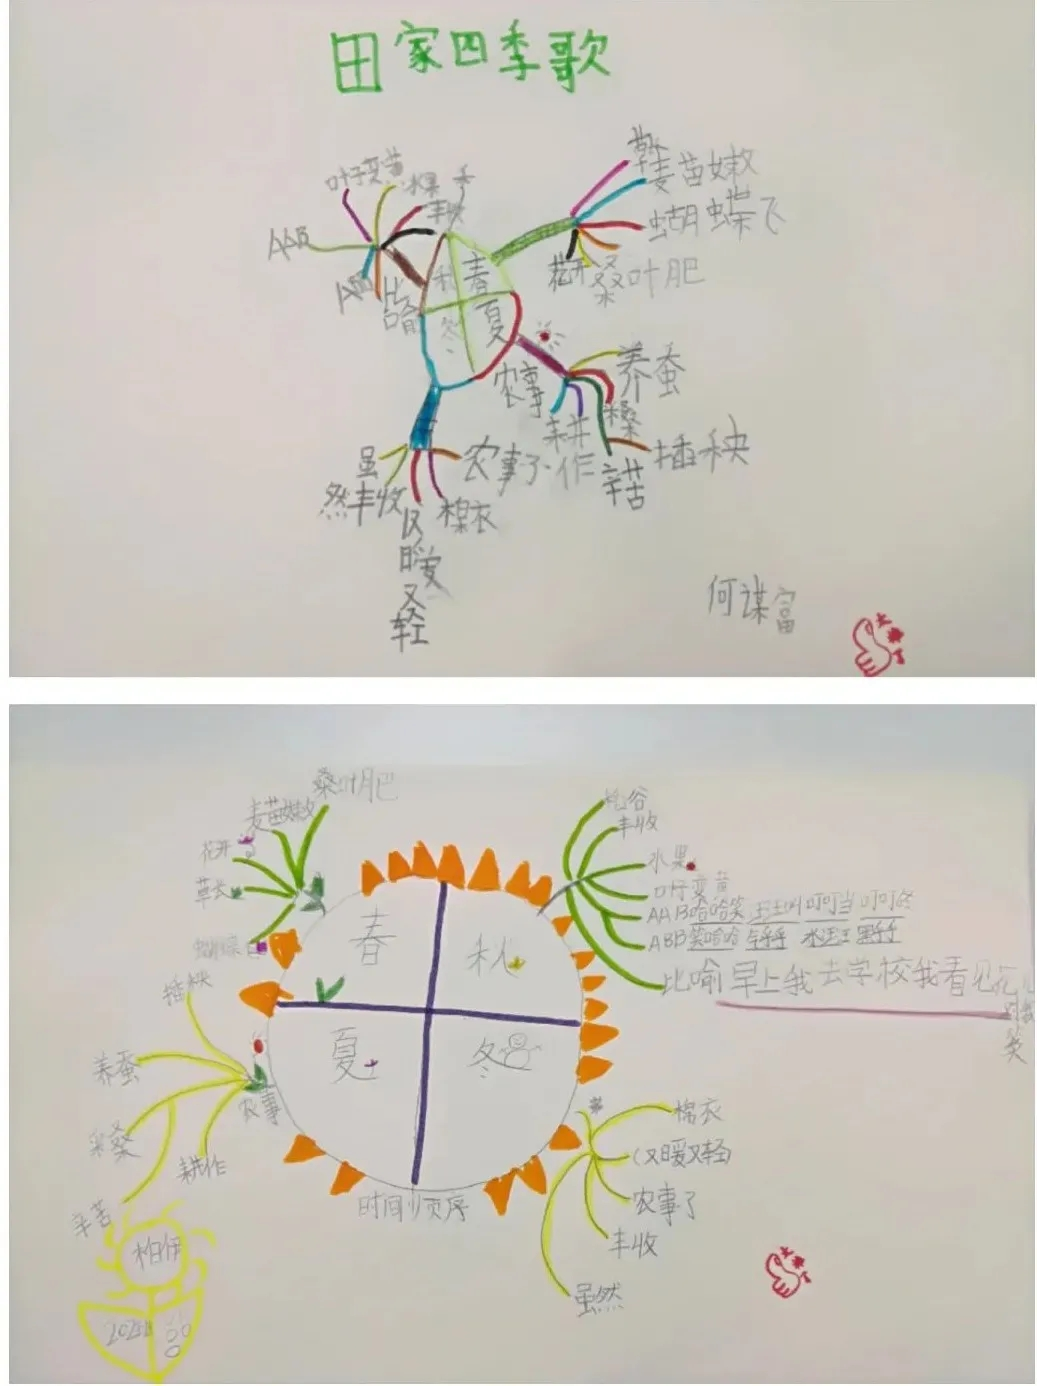 田家四季歌
叶子变黄
水果
禾
丰收
AAB
ABB
比喻
秋
春
冬
夏
草长
麦苗嫩
蝴蝶飞
花开
桑叶肥
农事
养蚕
采桑
耕作
插秧
辛苦
虽然丰收
又暖又轻
棉衣
农事了
何谋富
桑叶肥
麦苗嫩
花开
草长
插秧
养蚕
采桑
耕作
辛苦
农事
春
秋
夏
冬
时间顺序
稻谷
丰收
水果
叶子变黄
AAB哈哈笑 汪汪叫 叮叮当 叮叮咚
ABB笑哈哈
比喻早上我去学校我看见花儿
笑
棉衣
(又暖又轻)
农事了
丰收
虽然
柏伊